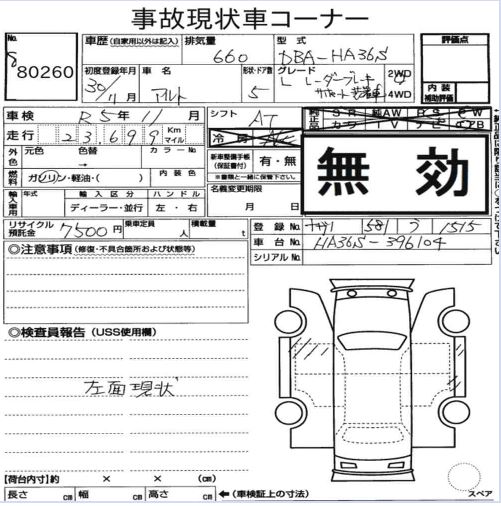 事故現状車コーナー
No. 80260
車歴 (自家用以外は記入)
排気量 660
型式 DBA-HA36S
評価点
初度登録年月 30/11月
車名 アルト
形状・ドア数 5
グレード L レーダーブレーキサポート装着車
2WD
4WD
内装補助評価
車検 R5年11月
シフト AT
走行 23,699 Km マイル
冷房 AC
純正品 SR 純AW PS PW
カワ TV ナビ エアB
外色 元色 → 色替 カラーNo.
燃料 ガソリン・軽油・( )
内装色
新車整備手帳(保証書付) 有・無
※書類と一緒に保管下さい。
無効
輸入車用 年式 年
輸入区分 ディーラー・並行
ハンドル 左・右
名義変更期限 月 日
リサイクル預託金 7500円
乗車定員 人
積載量 t
登録No. 581 う 1515
車台No. HA36S-396104
シリアルNo.
◎注意事項 (修復・不具合箇所および状態等)
◎検査員報告 (USS使用欄)
左面現状
【荷台内寸】約 × × (cm)
長さ cm 幅 cm 高さ cm ←(車検証上の寸法)
スペア